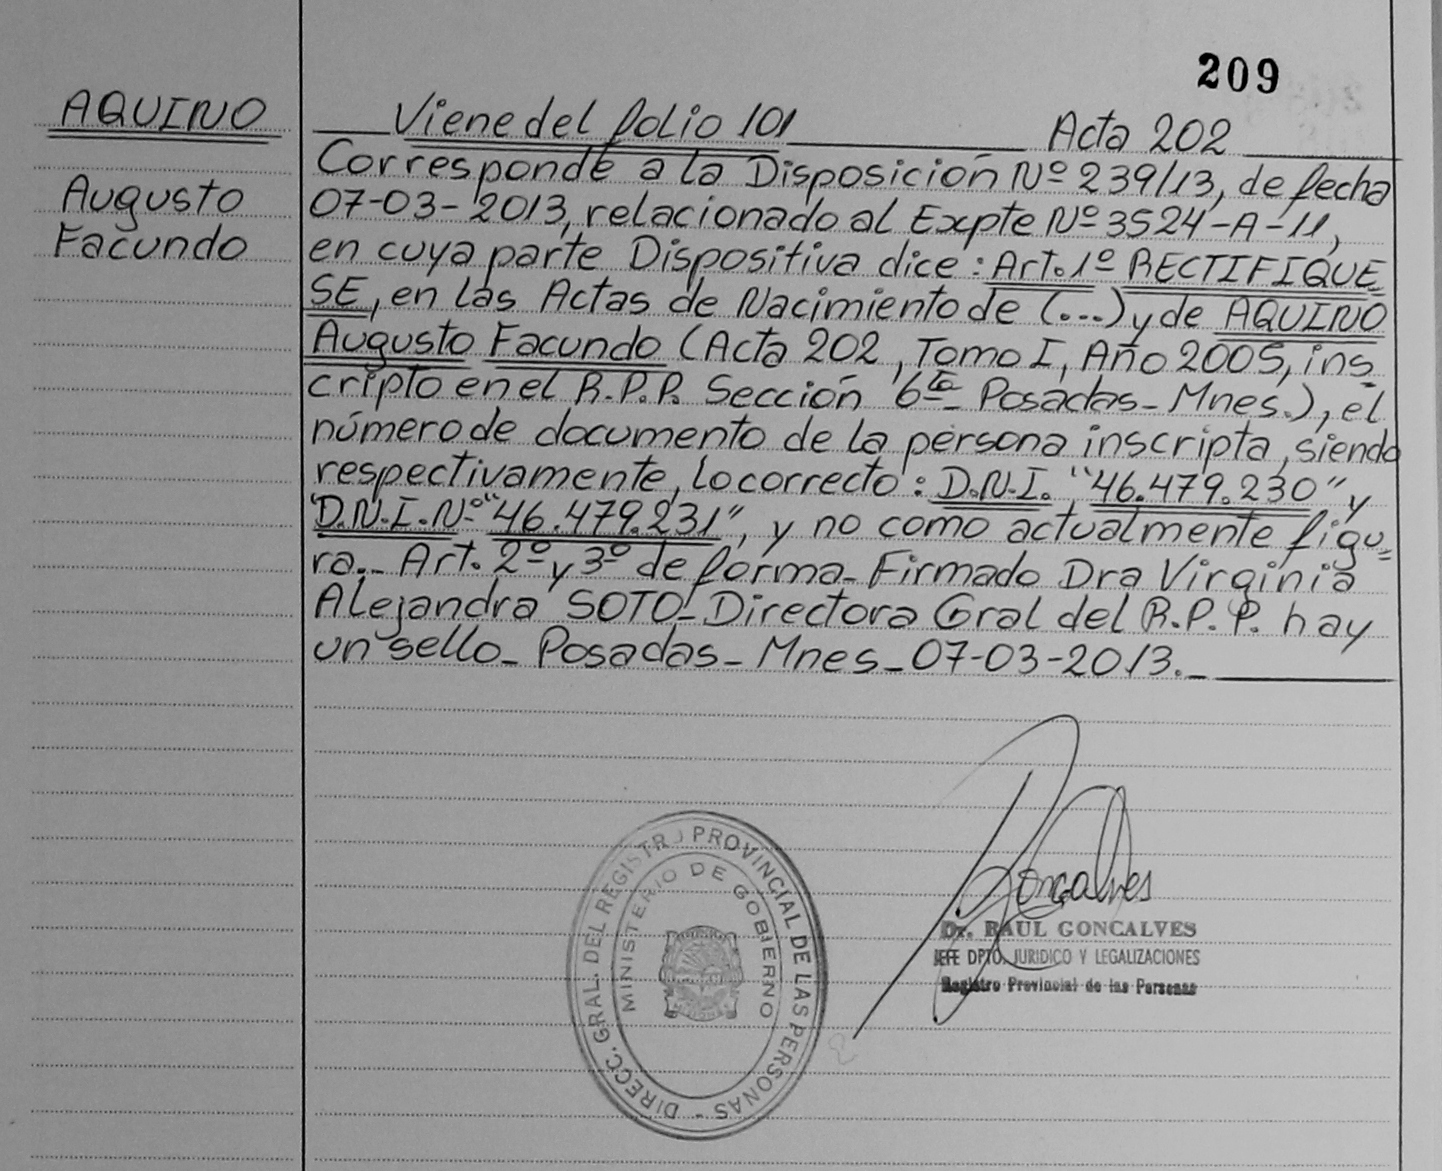 209
AQUINO
Augusto
Facundo
Viene del folio 101 Acta 202
Corresponde a la Disposición Nº 239/13, de fecha
07-03-2013, relacionado al Expte Nº 3524-A-11,
en cuya parte Dispositiva dice: Art. 1º RECTIFIQUE
SE, en las Actas de Nacimiento de (...) y de AQUINO
Augusto Facundo (Acta 202, Tomo I, Año 2005, ins
cripto en el R.P.P. Sección 6ta Posadas-Mnes.), el
número de documento de la persona inscripta, siendo
respectivamente, lo correcto: D.N.I. "46.479.230" y
D.N.I. Nº "46.479.231", y no como actualmente figu=
ra.- Art. 2º y 3º de forma- Firmado Dra Virginia
Alejandra SOTO- Directora Gral del R.P.P. hay
un sello- Posadas- Mnes- 07-03-2013.-
Goncalves
Dr. RAUL GONCALVES
JEFE DPTO. JURIDICO Y LEGALIZACIONES
Registro Provincial de las Personas
DIRECC. GRAL. DEL REGISTRO PROVINCIAL DE LAS PERSONAS -
MINISTERIO DE GOBIERNO